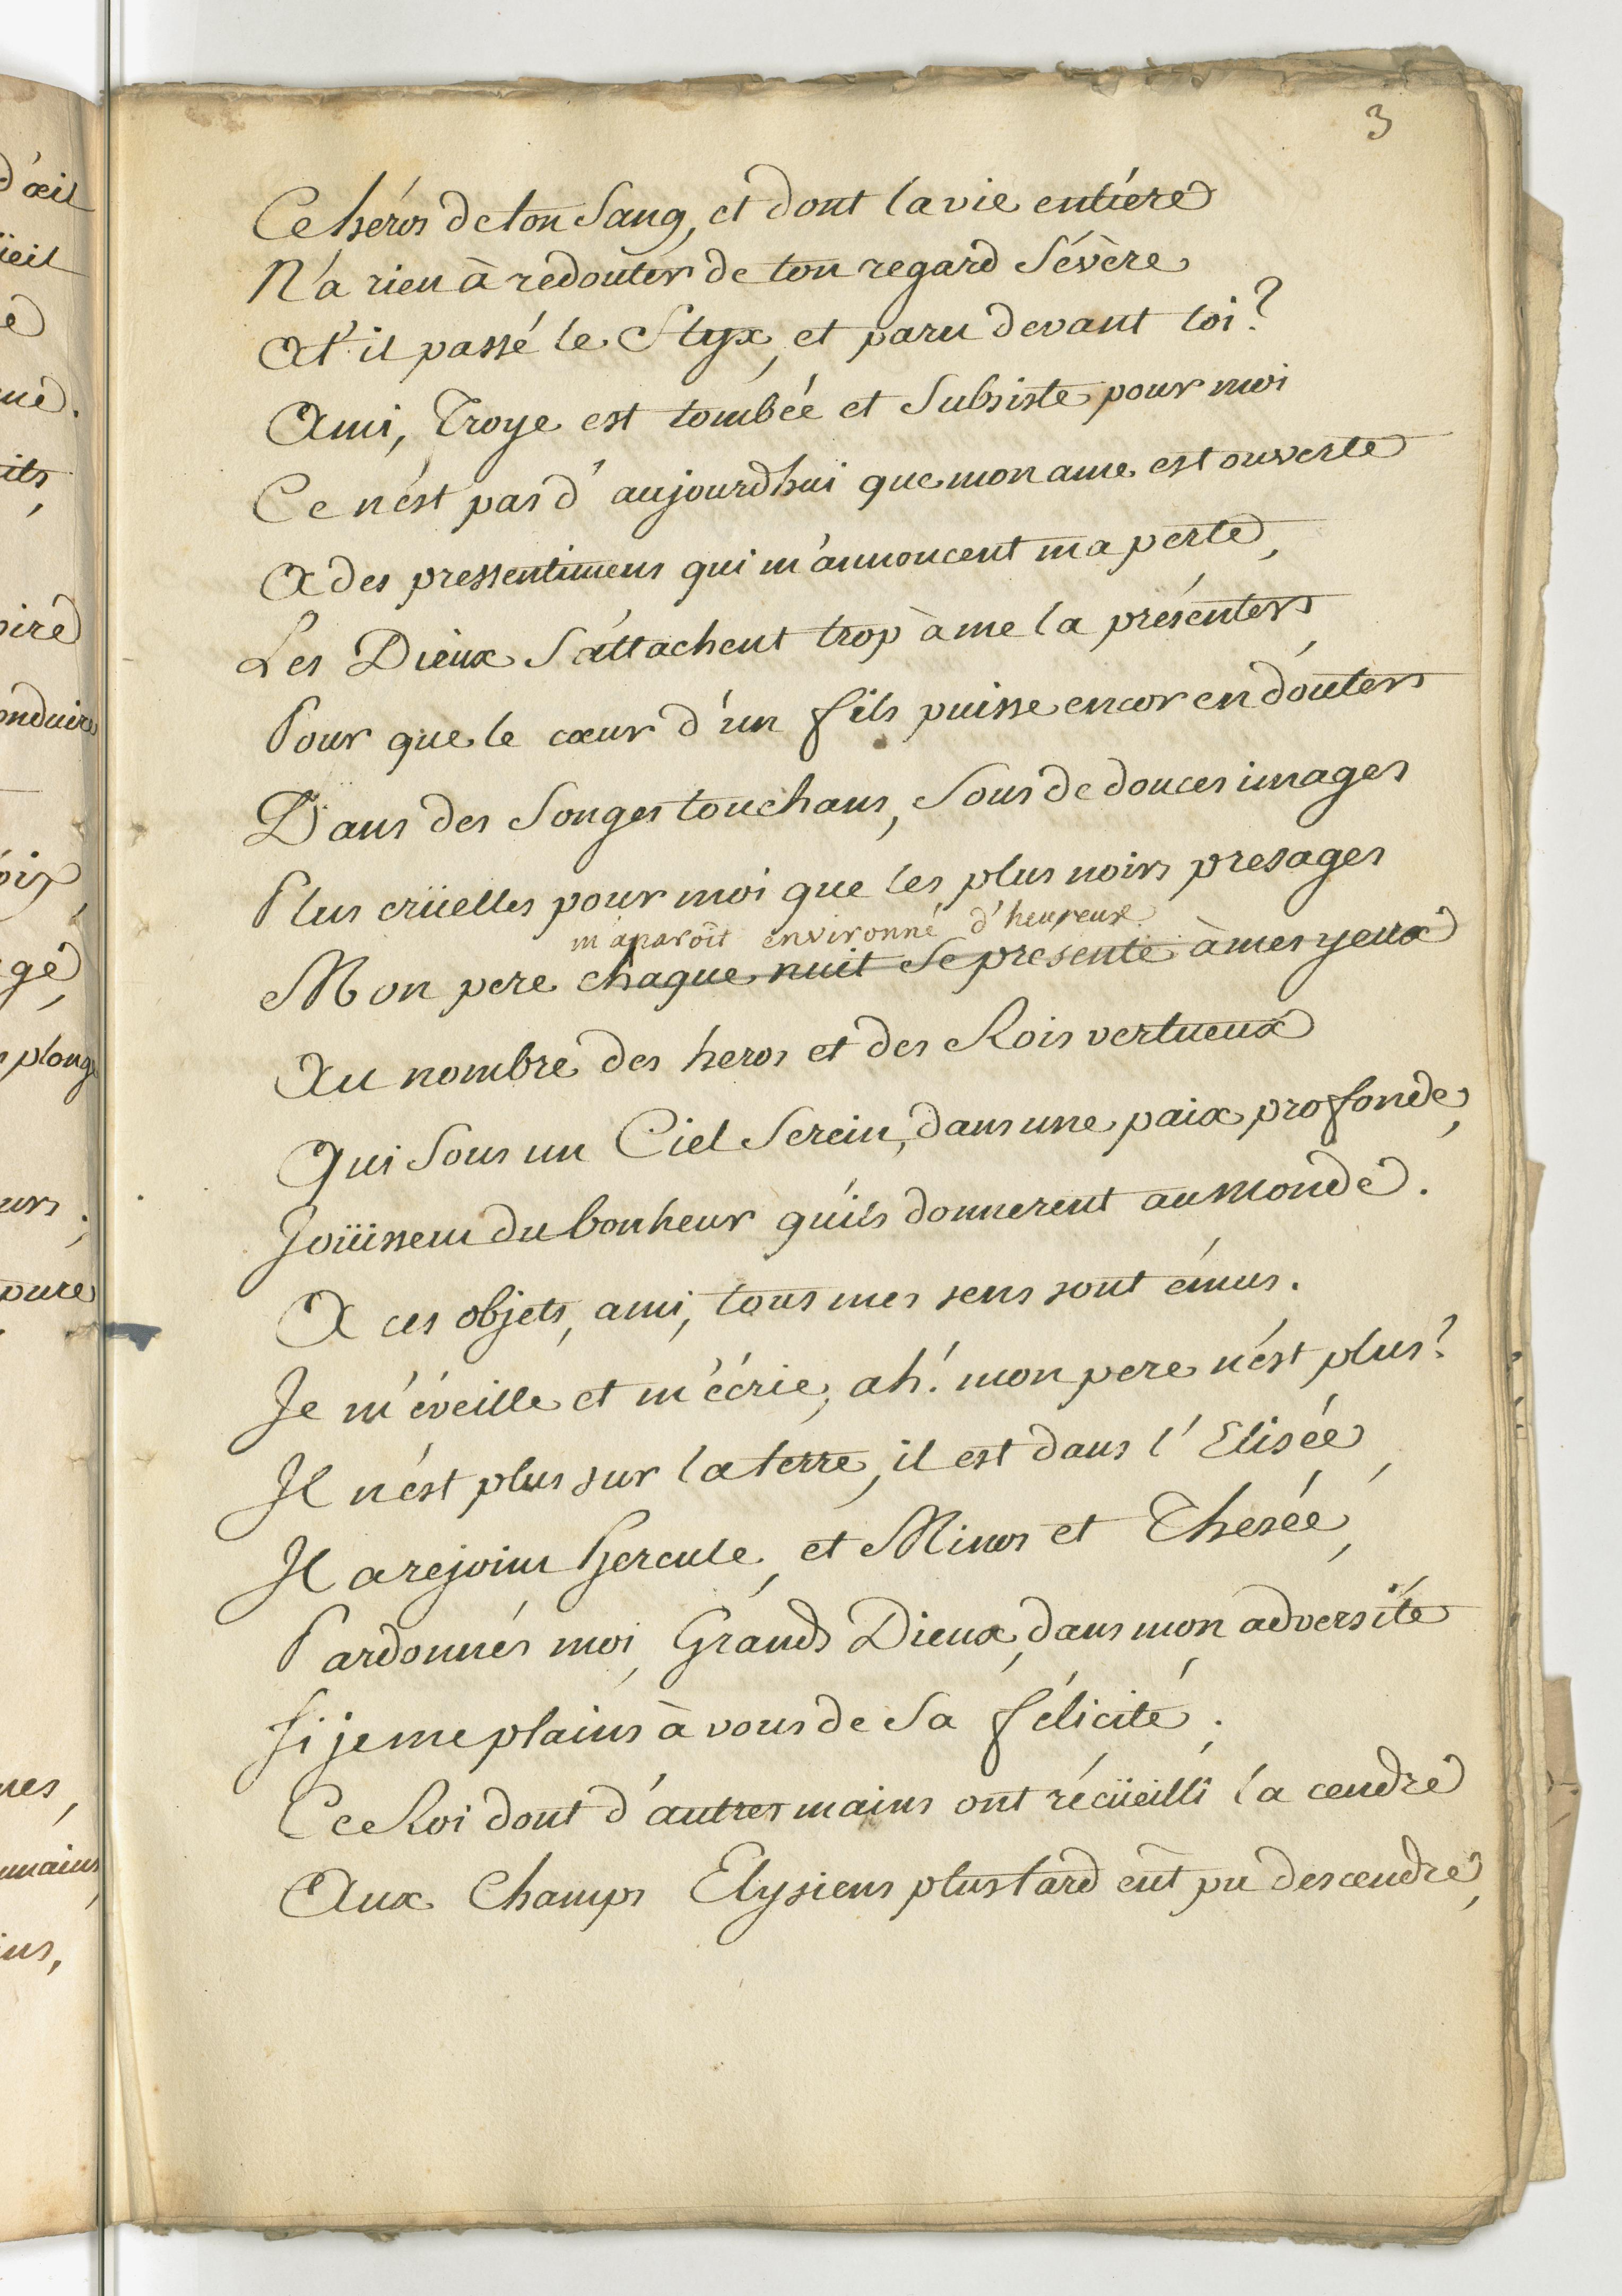 3
Ce héros de ton Sang, et dont la vie entiére
N'a rien à redouter de ton regard Sévère
At'il passé le Styx, et paru devant toi?
Ami, Troye est tombée et Subsiste pour moi
Ce n'est pas d'aujourdhui que mon ame est ouverte
A des pressentimens qui m'annoncent ma perte,
Les Dieux S'attachent trop à me la présenter,
Pour que le cœur d'un fils puisse encor en douter
Dans des Songes touchans, Sous de douces images
Plus crüelles pour moi que les plus noirs presages
m'aparoît environné d'heureux
Mon pere chaque nuit Se presente à mes yeux
Au nombre des heros et des Rois vertueux
Qui Sous un Ciel Serein, dans une paix profonde,
Joüissent du bonheur qu'ils donnerent au Monde.
A ces objets, ami, tous mes sens sont émus.
Je m'éveille et m'écrie, ah! mon pere n'est plus?
Il n'est plus sur la terre, il est dans l'Elisée,
Il a rejoint Hercule, et Minos et Thesée,
Pardonnés moi, Grands Dieux, dans mon adversité
Si je me plains à vous de Sa félicité.
Ce Roi dont d'autres mains ont récüeilli la cendre
Aux Champs Elysiens plus tard eût pu descendre,
d'œil
üeil
ué.
oix,
gé,
plongé
urs;
pure
mains